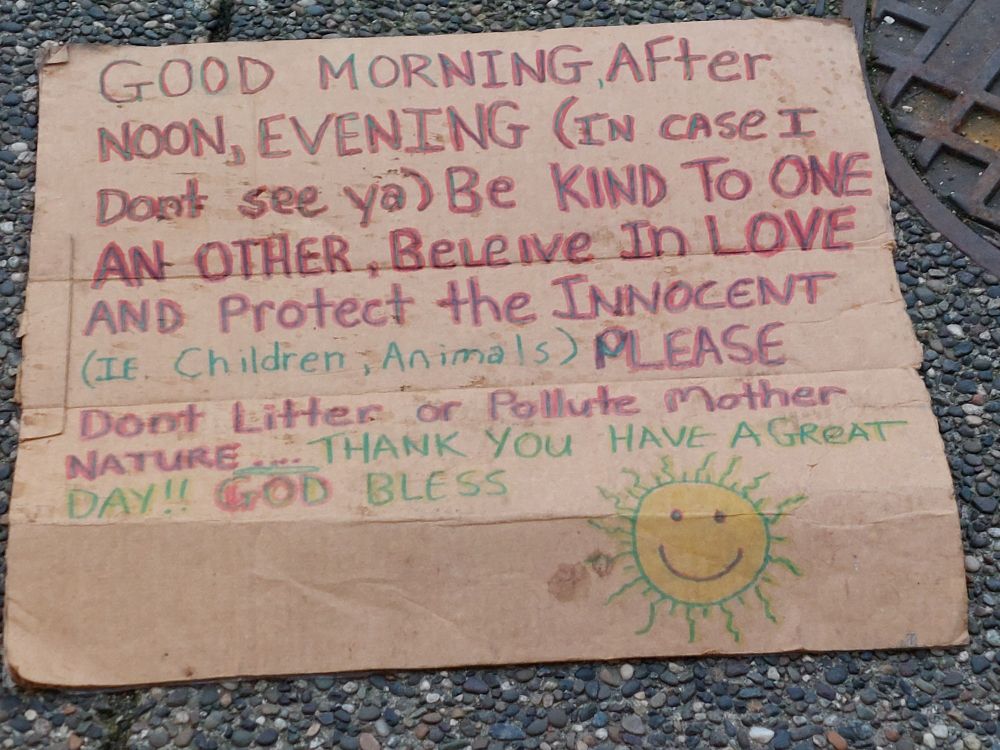 GOOD MORNING, AFter
NOON, EVENING (IN CASE I
Dont see ya) Be KIND To ONE
AN OTHER, BeLeIve In LOVE
AND Protect the INNOCENT
(IE. Children, Animals) PLEASE
Dont Litter or Pollute Mother
NATURE.... THANK YOU HAVE A GReAT
DAY!! GOD BLESS